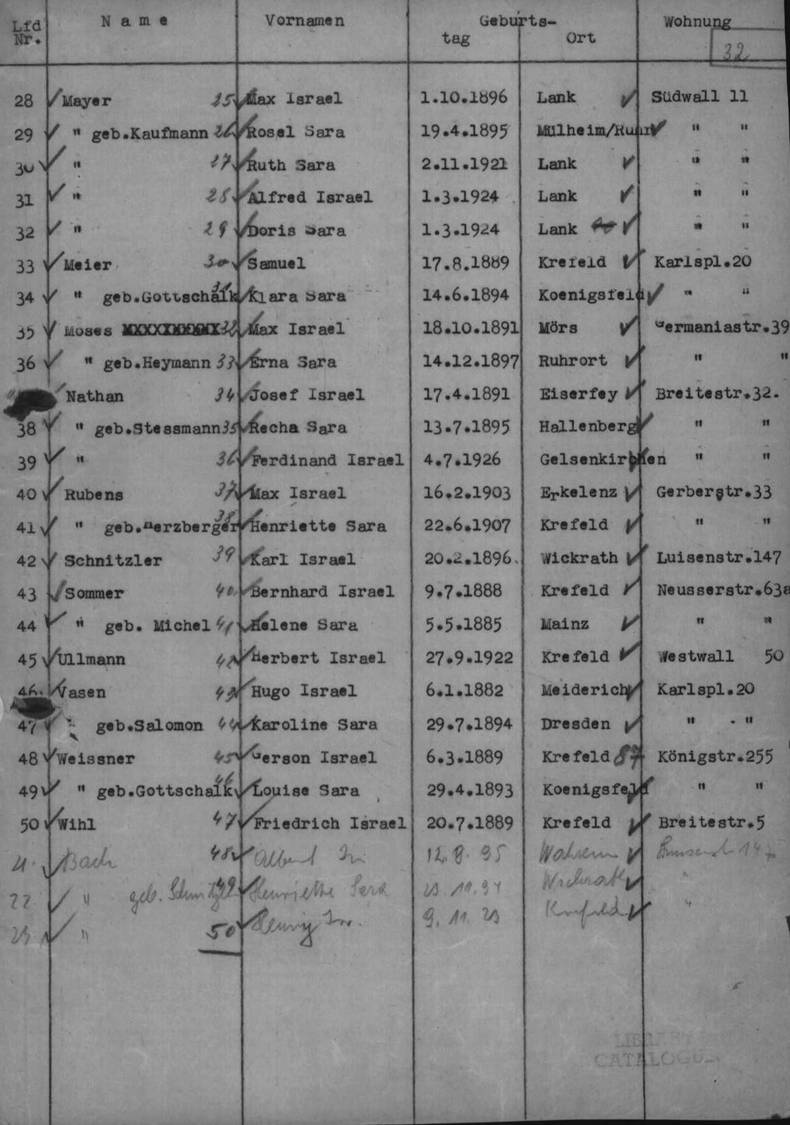 Lfd Nr. Name Vornamen Geburts- tag Ort Wohnung
32
28 Mayer 25 Max Israel 1.10.1896 Lank Südwall 11
29 " geb.Kaufmann 26 Rosel Sara 19.4.1895 Mülheim/Ruhr " "
30 " 27 Ruth Sara 2.11.1921 Lank " "
31 " 28 Alfred Israel 1.3.1924 Lank " "
32 " 29 Doris Sara 1.3.1924 Lank " "
33 Meier 30 Samuel 17.8.1889 Krefeld Karlspl.20
34 " geb.Gottschalk 31 Klara Sara 14.6.1894 Koenigsfeld " "
35 Moses 32 Max Israel 18.10.1891 Mörs Germaniastr.39
36 " geb.Heymann 33 Erna Sara 14.12.1897 Ruhrort " "
Nathan 34 Josef Israel 17.4.1891 Eiserfey Breitestr.32.
38 " geb.Stessmann 35 Recha Sara 13.7.1895 Hallenberg " "
39 " 36 Ferdinand Israel 4.7.1926 Gelsenkirchen " "
40 Rubens 37 Max Israel 16.2.1903 Erkelenz Gerberstr.33
41 " geb.Herzberger 38 Henriette Sara 22.6.1907 Krefeld " "
42 Schnitzler 39 Karl Israel 20.2.1896. Wickrath Luisenstr.147
43 Sommer 40 Bernhard Israel 9.7.1888 Krefeld Neusserstr.63a
44 " geb. Michel 41 Helene Sara 5.5.1885 Mainz " "
45 Ullmann 42 Herbert Israel 27.9.1922 Krefeld Westwall 50
46. Vasen 43 Hugo Israel 6.1.1882 Meiderich Karlspl.20
47 " geb.Salomon 44 Karoline Sara 29.7.1894 Dresden " "
48 Weissner 45 Gerson Israel 6.3.1889 Krefeld 87 Königstr.255
49 " geb.Gottschalk 46 Louise Sara 29.4.1893 Koenigsfeld " "
50 Wihl 47 Friedrich Israel 20.7.1889 Krefeld Breitestr.5
21. Bach 48 Albert Isr. 12.8.95
22 " geb. 49 Henriette Sara Wickrath "
23 " 50 Henry Isr. 9.11.23 Krefeld "
LIBRARY
CATALOGUE